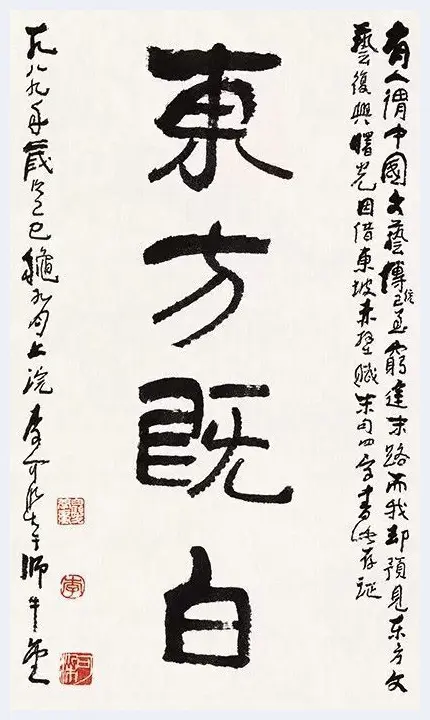 有人謂中國文藝傳統已至窮途末路而我却預見东方文
藝復興曙光因借東坡赤壁賦末句四字書此存証
東方既白
一九八九年歲次己巳龝九月上浣李可染于師牛堂
李
可染